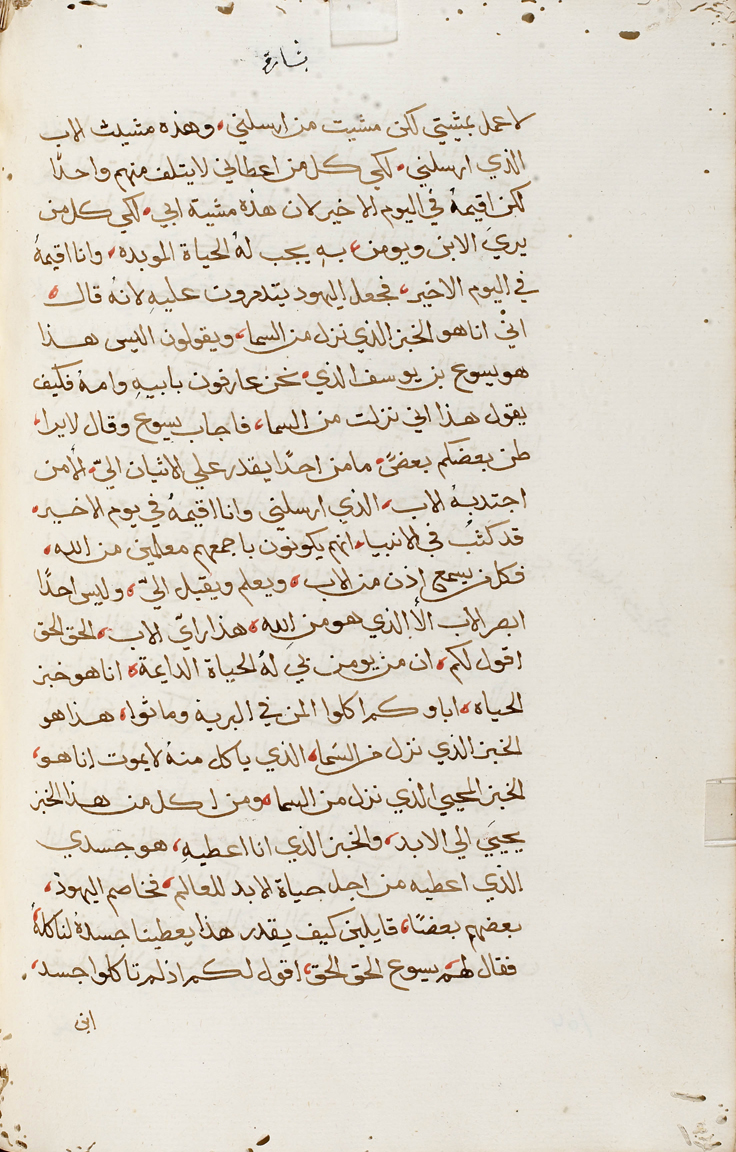 بشارة
لاعمل بمشيتي لكن مشيت من ارسلني، وهذه مشيئت الاب
الذي ارسلني، لكي كل من اعطاني لا يتلف منهم واحدًا
لكن اقيمهُ في اليوم الاخير لان هذه مشية ابي، لكي كل من
يري الابن ويومن، بهِ يجب لهُ الحياة الموبده، وانا اقيمهُ
في اليوم الاخير، فجعل اليهود يتدمرون عليهِ لانهُ قال،
اني انا هو الخبز الذي نزل من السما، ويقولون اليس هذا
هو يسوع بن يوسف الذي، نحن عارفون بابيهِ وامهُ فكيف
يقول هذا اني نزلت من السما، فاجاب يسوع وقال لا يرا،
طن بعضكم بعضً، ما من احدًا يقدر علي الاتيان اليّ، الا من
اجتدبهُ الاب، الذي ارسلني وانا اقيمهُ في يوم الاخير،
قد كتبُ في الانبيا، انهم يكونون باجمعهم معلمين من الله،
فكل من يسمع إذن من الاب، ويعلم ويقبل اليّ، وليس احدًا
ابصر الاب الا الذي هو من الله، هذا راي الاب، الحق الحق
اقول لكم، ان من يومن بي لهُ الحياة الدايمة، انا هو خبز
الحياه، اباوكم اكلوا المن في البرية وماتوا، هذا هو
الخبز الذي نزل من السما، الذي ياكل منهُ لا يموت انا هو،
الخبز المحيي الذي نزل من السما، ومن اكل من هذا الخبز
يحيي الي الابد، والخبز الذي انا اعطيهِ، هو جسدي
الذي اعطيه من اجل حياة الابد للعالم، فخاصم اليهود،
بعضهم بعضًا، قايلين كيف يقدر هذا يعطينا جسدهُ لناكلهُ
فقال لهم يسوع الحق الحق، اقول لكم اذ لم تاكلوا جسد،
ابن